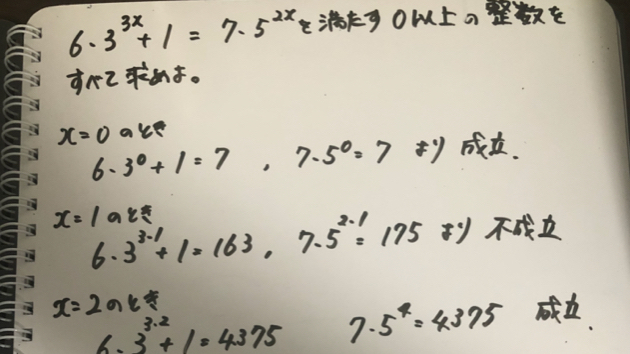 6・3^{3x}+1 = 7・5^{2x}を満たす0以上の整数を
すべて求めよ。
x=0のとき
6・3^0+1=7 , 7・5^0=7 より 成立.
x=1のとき
6・3^{3・1}+1=163, 7・5^{2・1}=175 より 不成立
x=2のとき
6・3^{3・2}+1=4375 7・5^4=4375 成立.